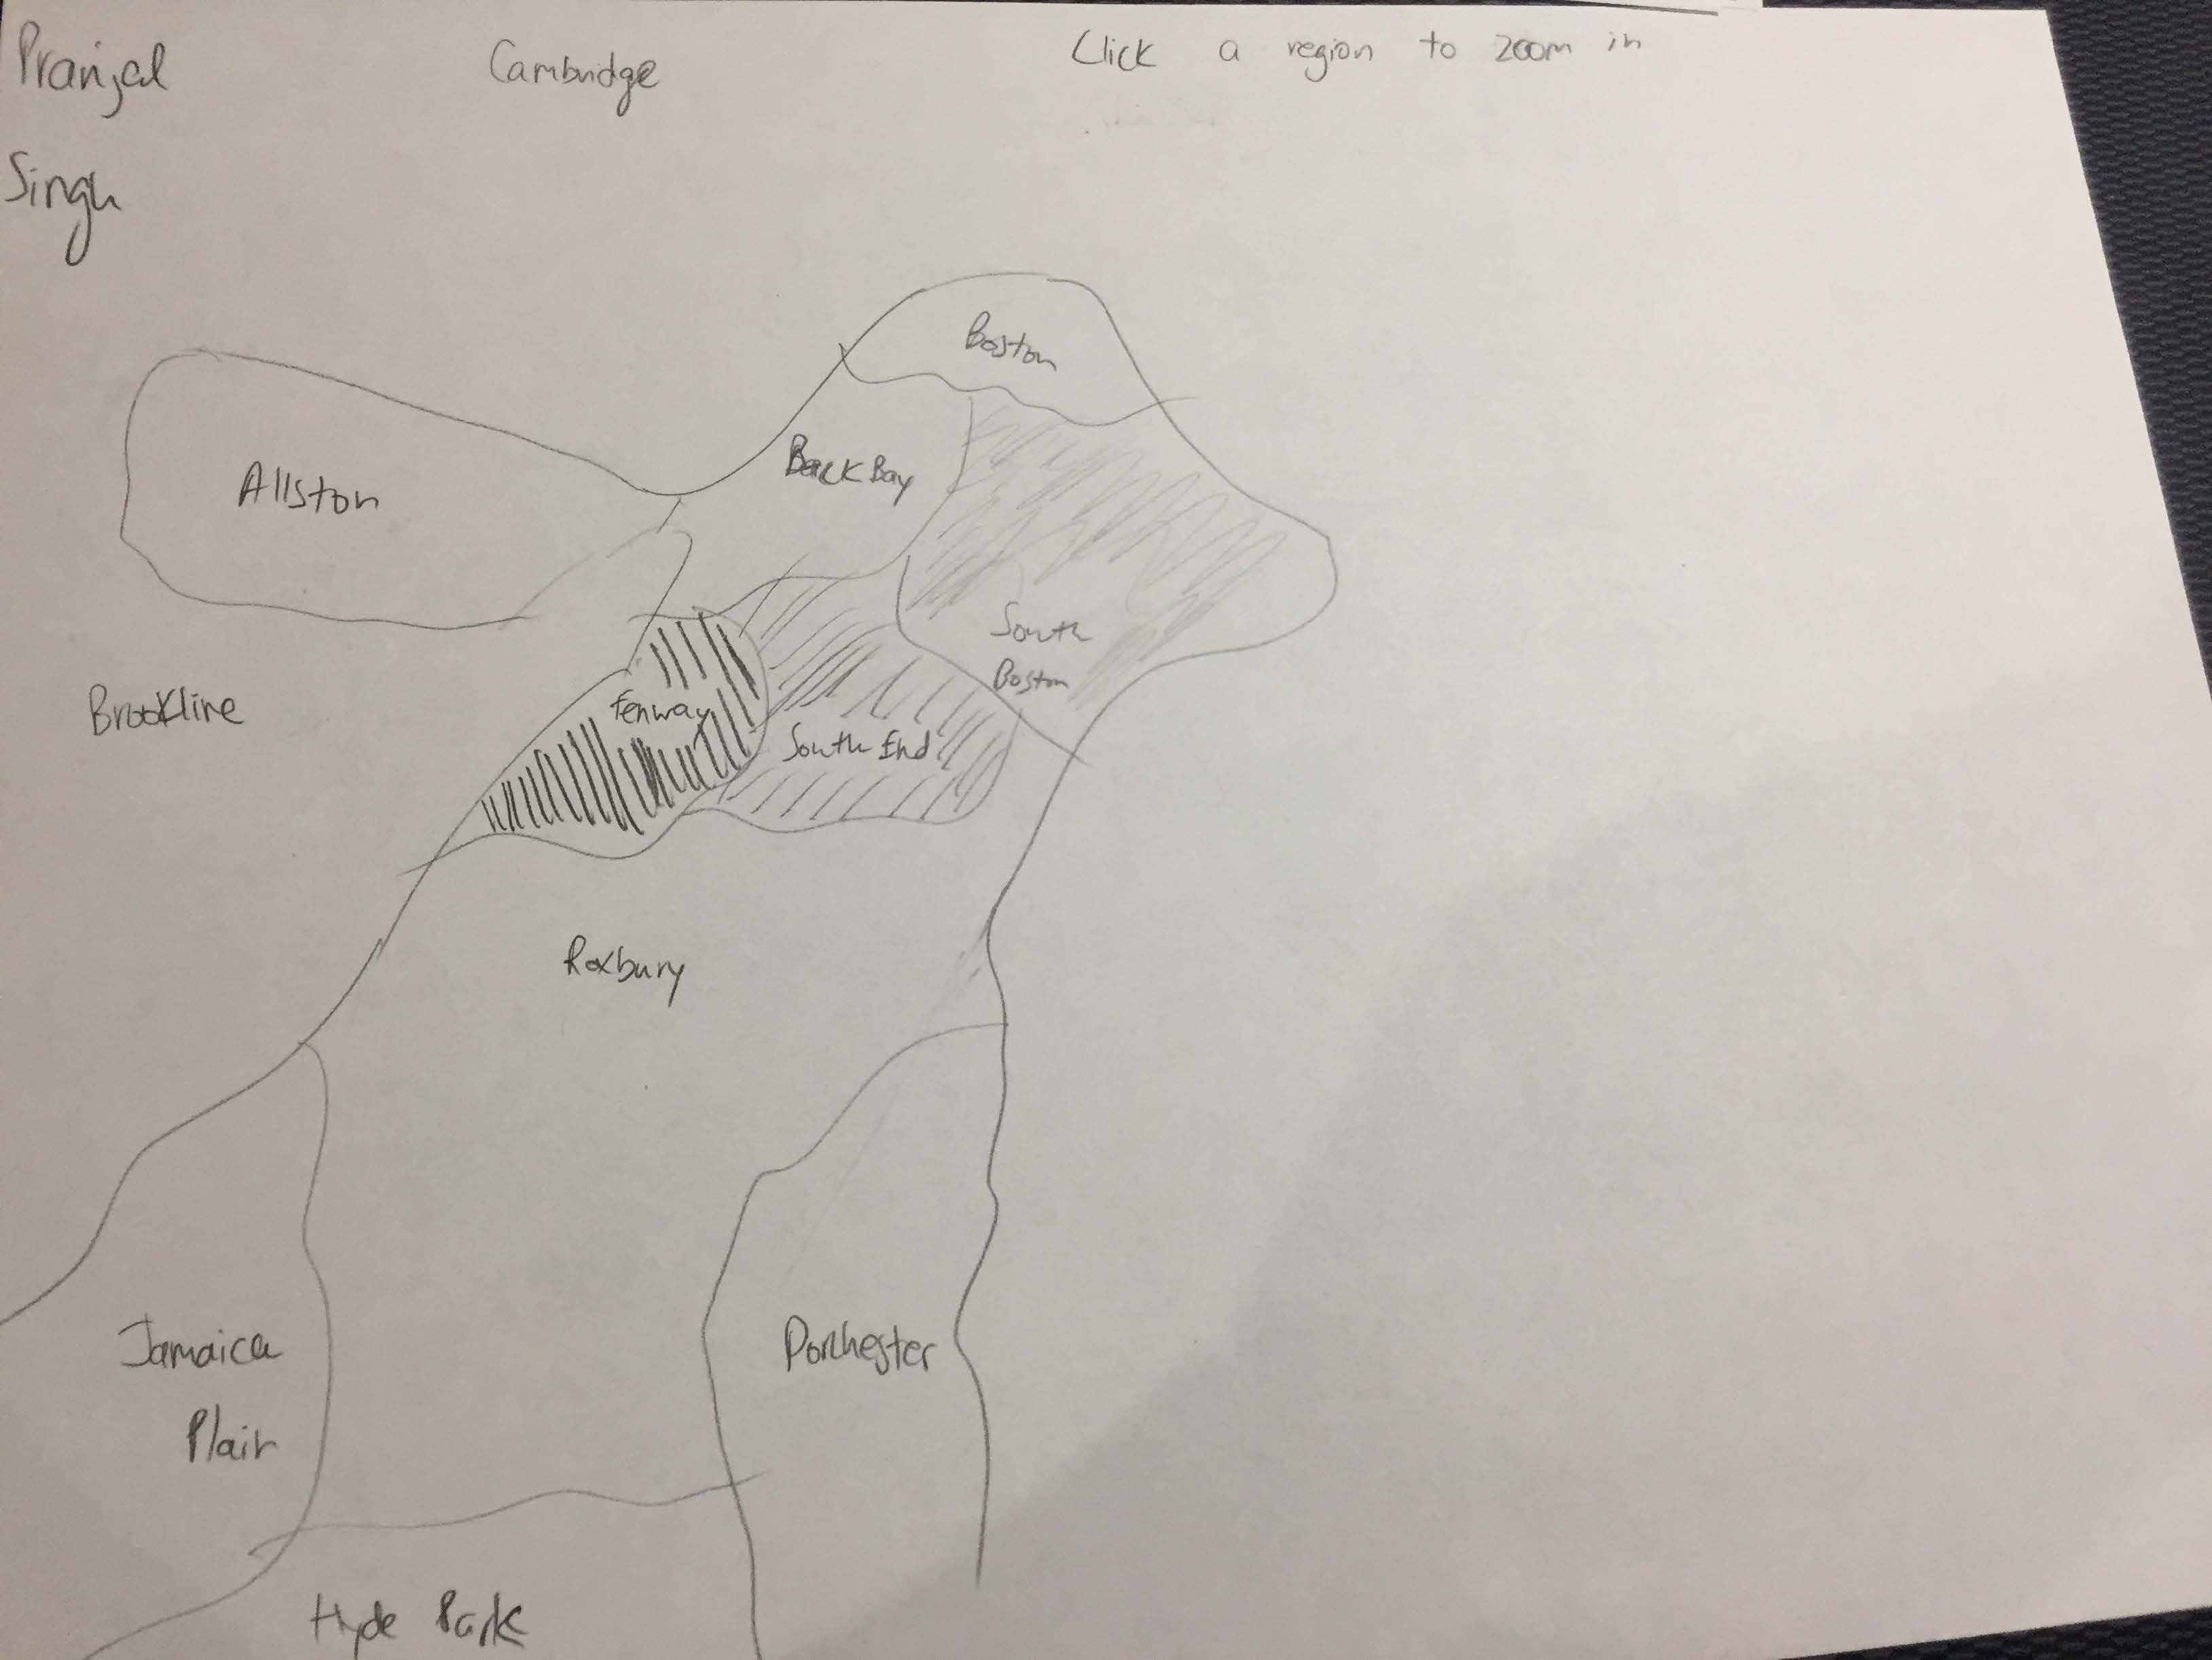 Pranjal
Singh
Cambridge
Click a region to zoom in
Boston
Back Bay
Allston
South
Boston
Brookline
Fenway
South End
Roxbury
Jamaica
Plain
Dorchester
Hyde Park